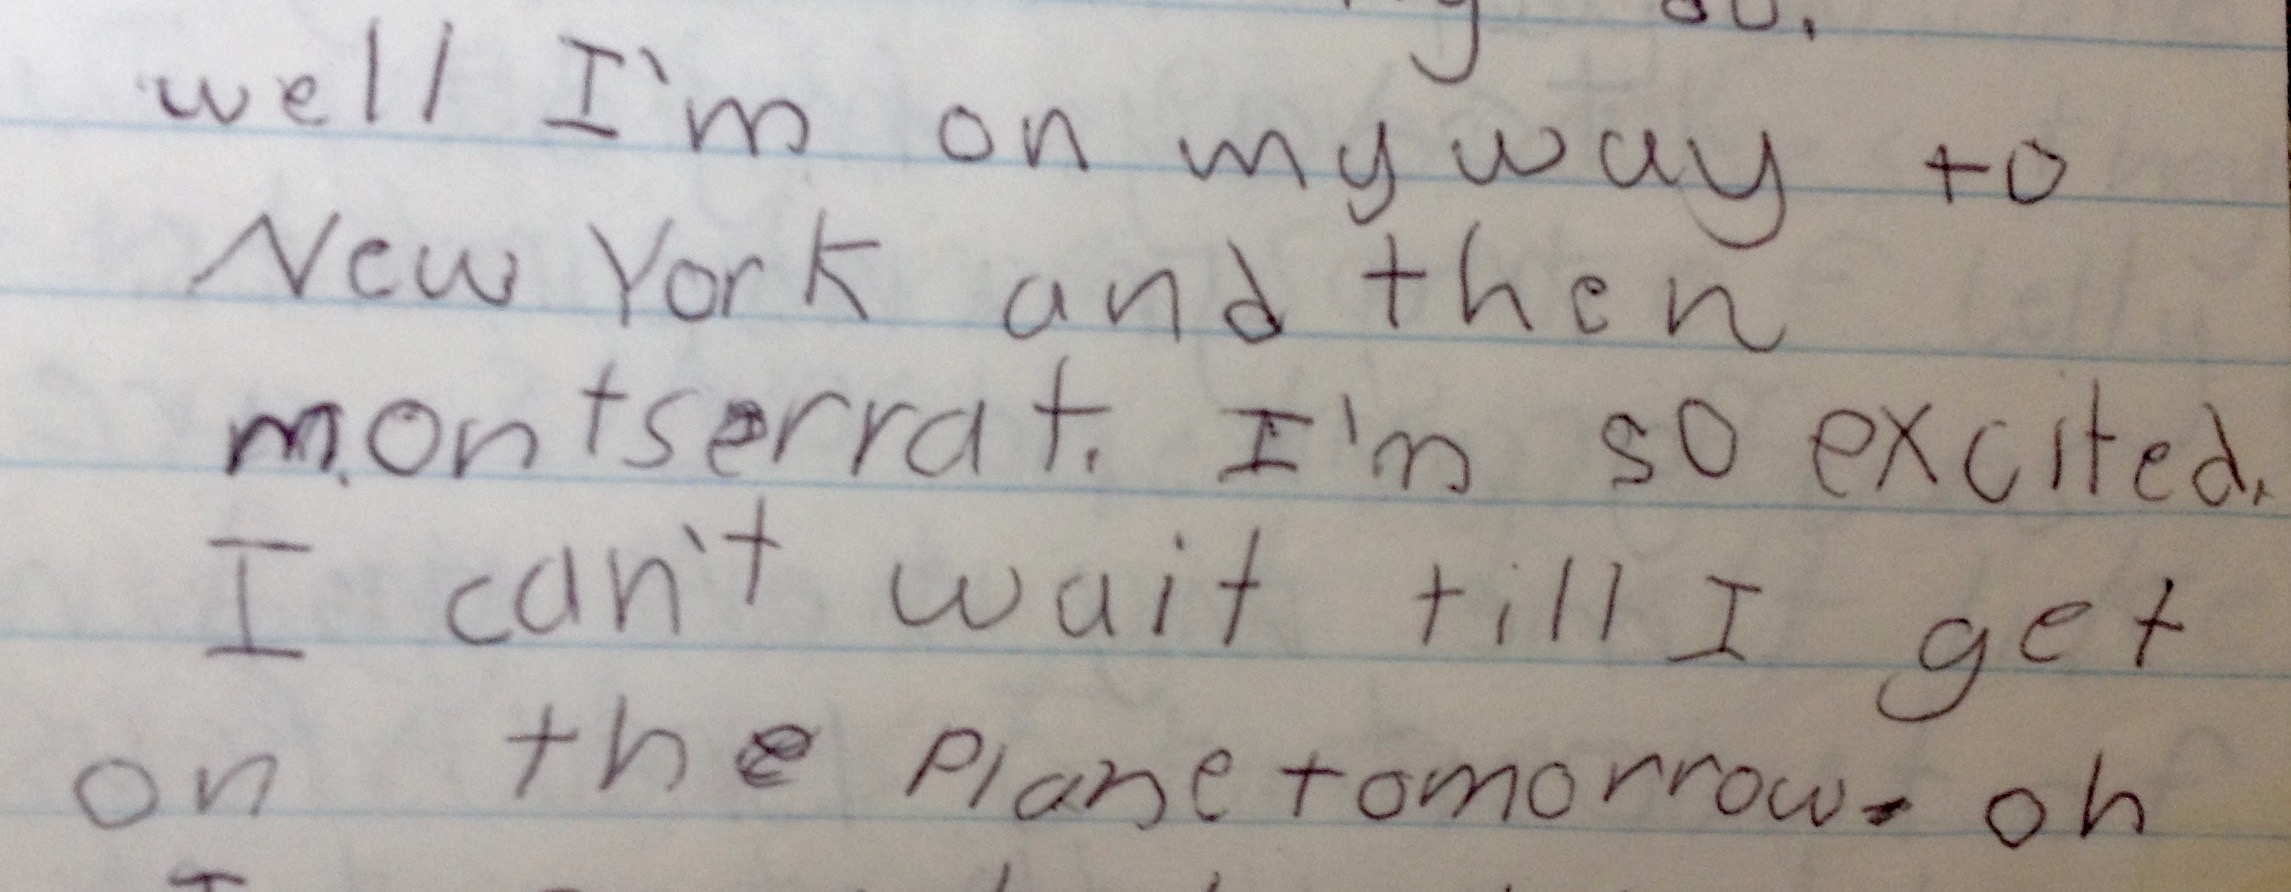 well I'm on my way to
New York and then
montserrat. I'm so excited.
I can't wait till I get
on the Plane tomorrow. oh